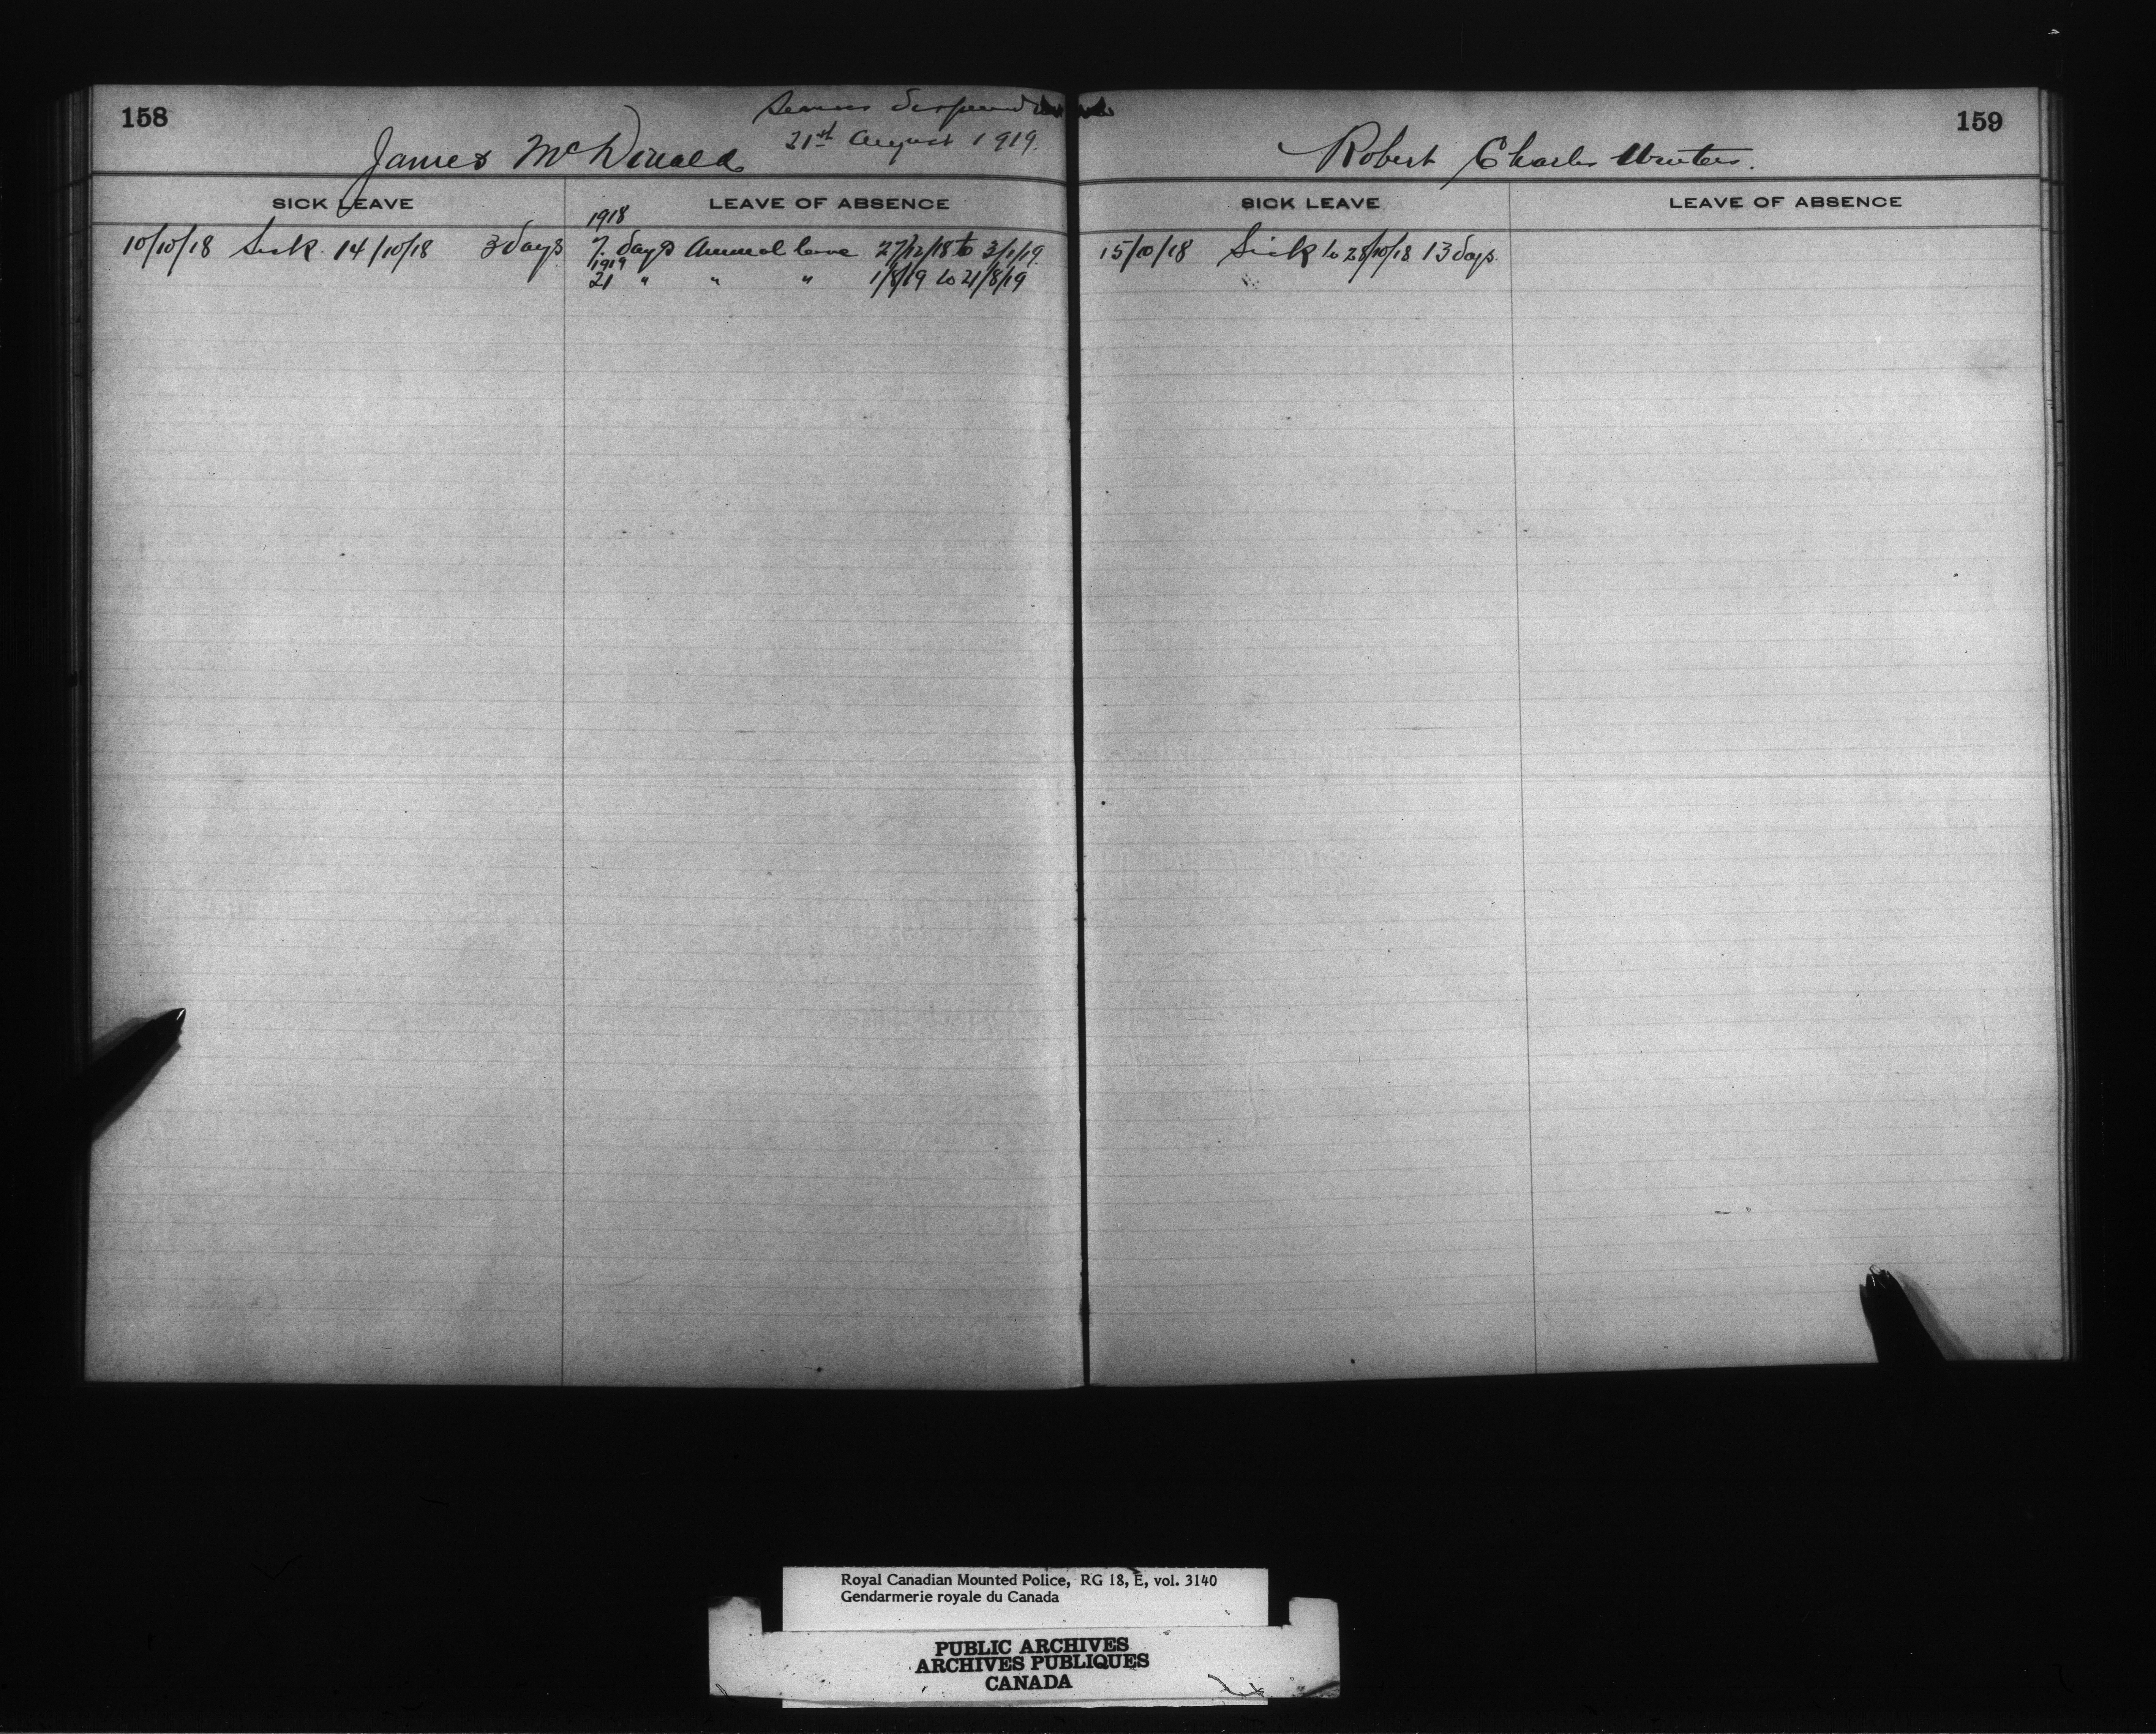 158
Services Dispensed
21st August 1919.
James McDonald
SICK LEAVE
LEAVE OF ABSENCE
10/10/18 Sick. 14/10/18 3 days
1918
7. days Annual leave 27/12/18 to 3/1/19
1919
21 " " " 1/8/19 to 21/8/19
159
Robert Charles Winters.
SICK LEAVE
LEAVE OF ABSENCE
15/10/18 Sick to 28/10/18 13 days.
Royal Canadian Mounted Police, RG 18, E, vol. 3140
Gendarmerie royale du Canada
PUBLIC ARCHIVES
ARCHIVES PUBLIQUES
CANADA